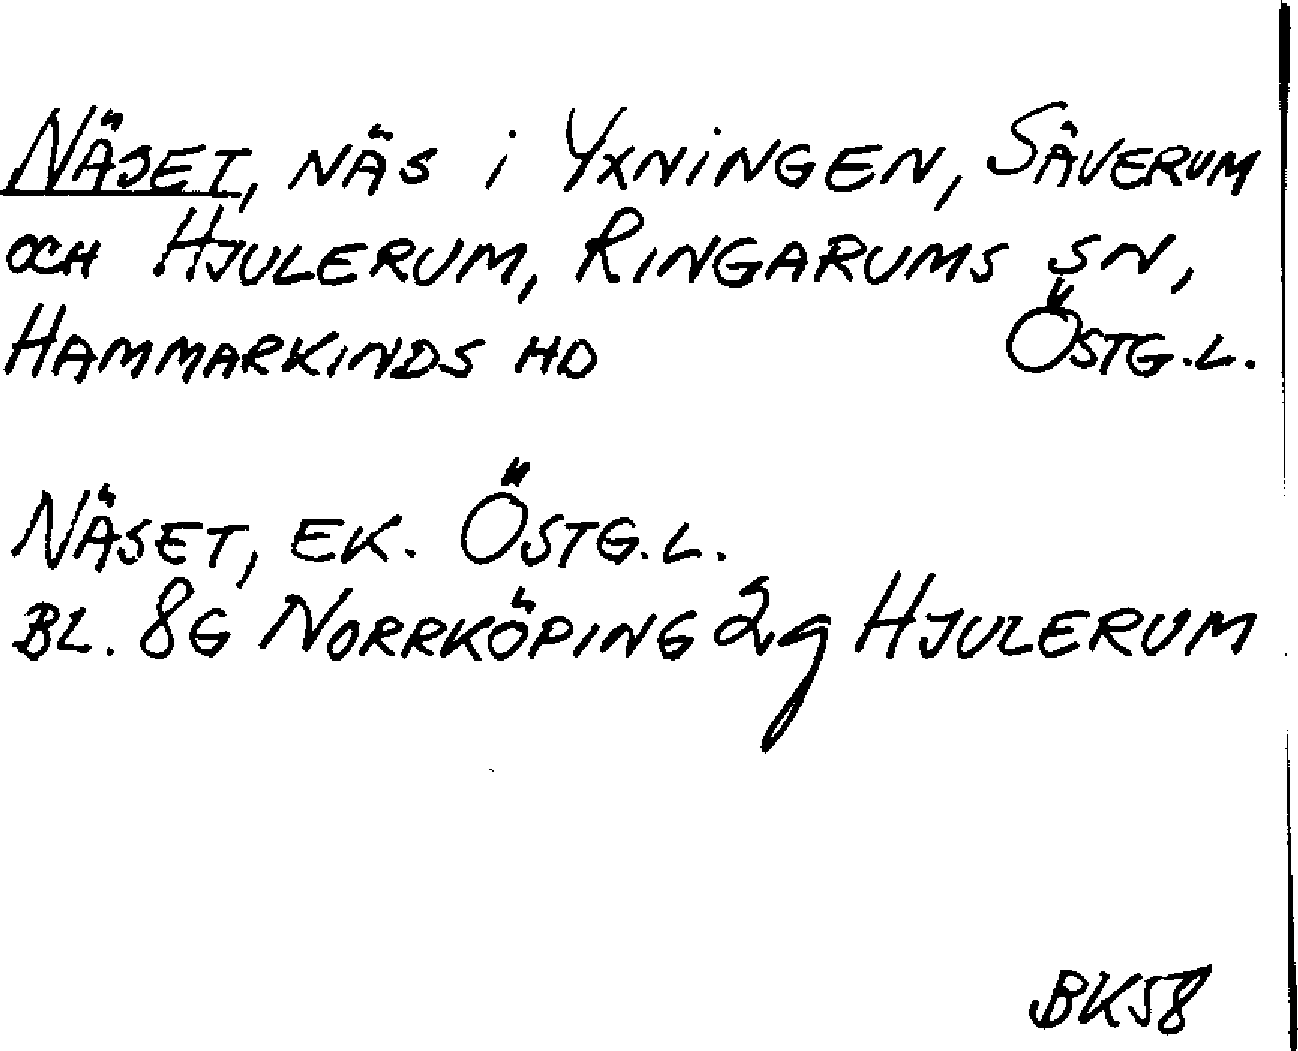 NÄSET, NÄS i YXNINGEN, SÄVERUM
OCH HJULERUM, RINGARUMS SN,
HAMMARKINDS HD ÖSTG.L.
NÄSET, EK. ÖSTG.L.
BL. 8G NORRKÖPING 2g HJULERUM
BK58